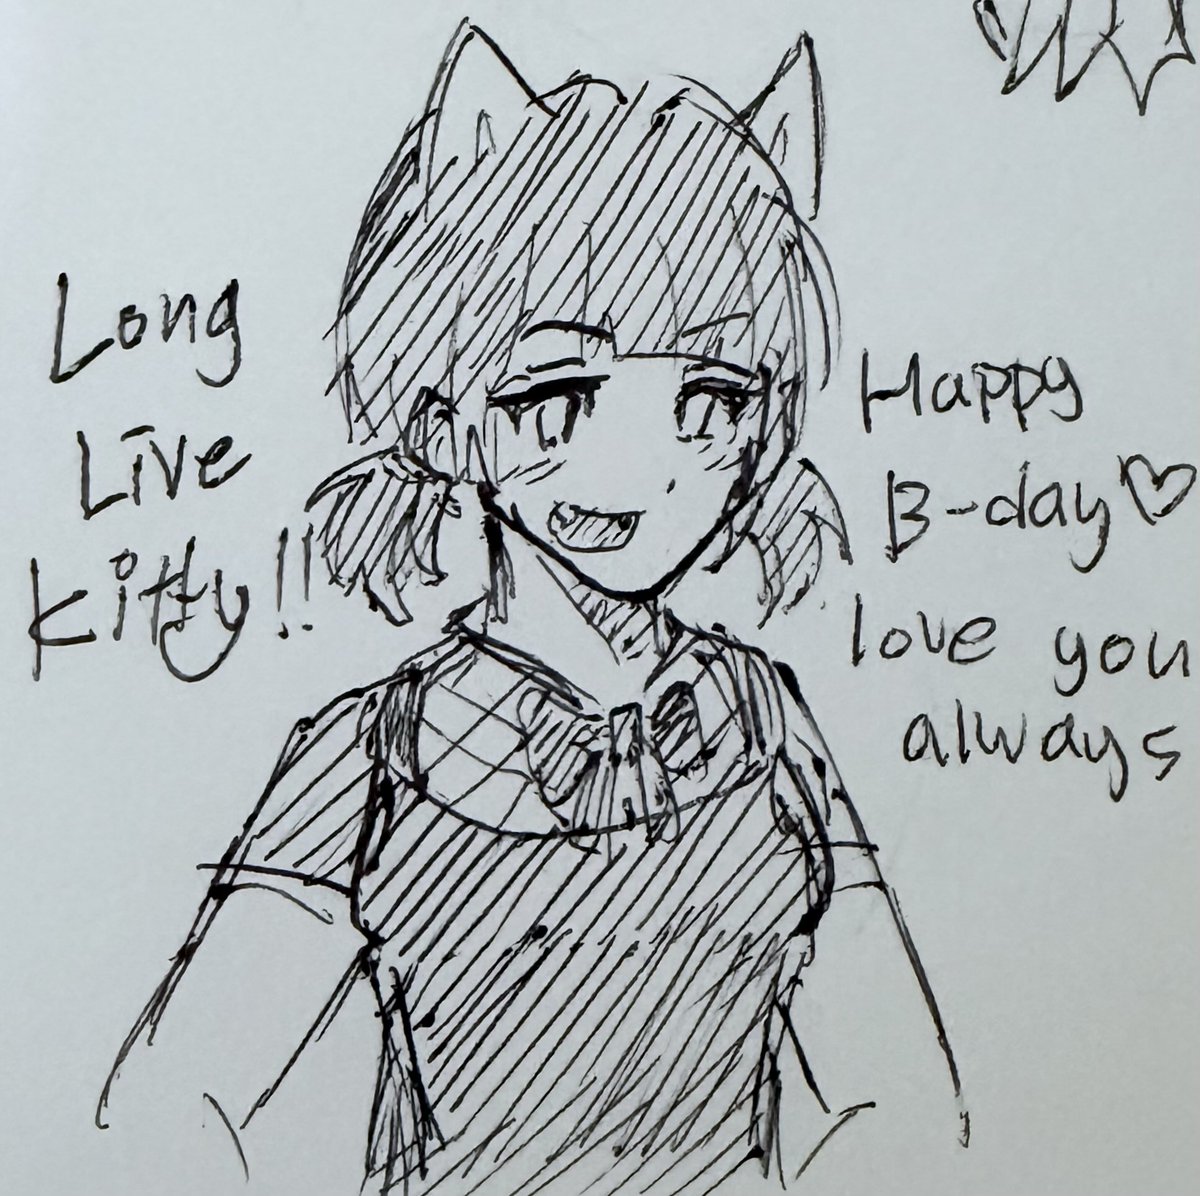 Long
Live
Kitty!!
Happy
B-day♡
love you
always